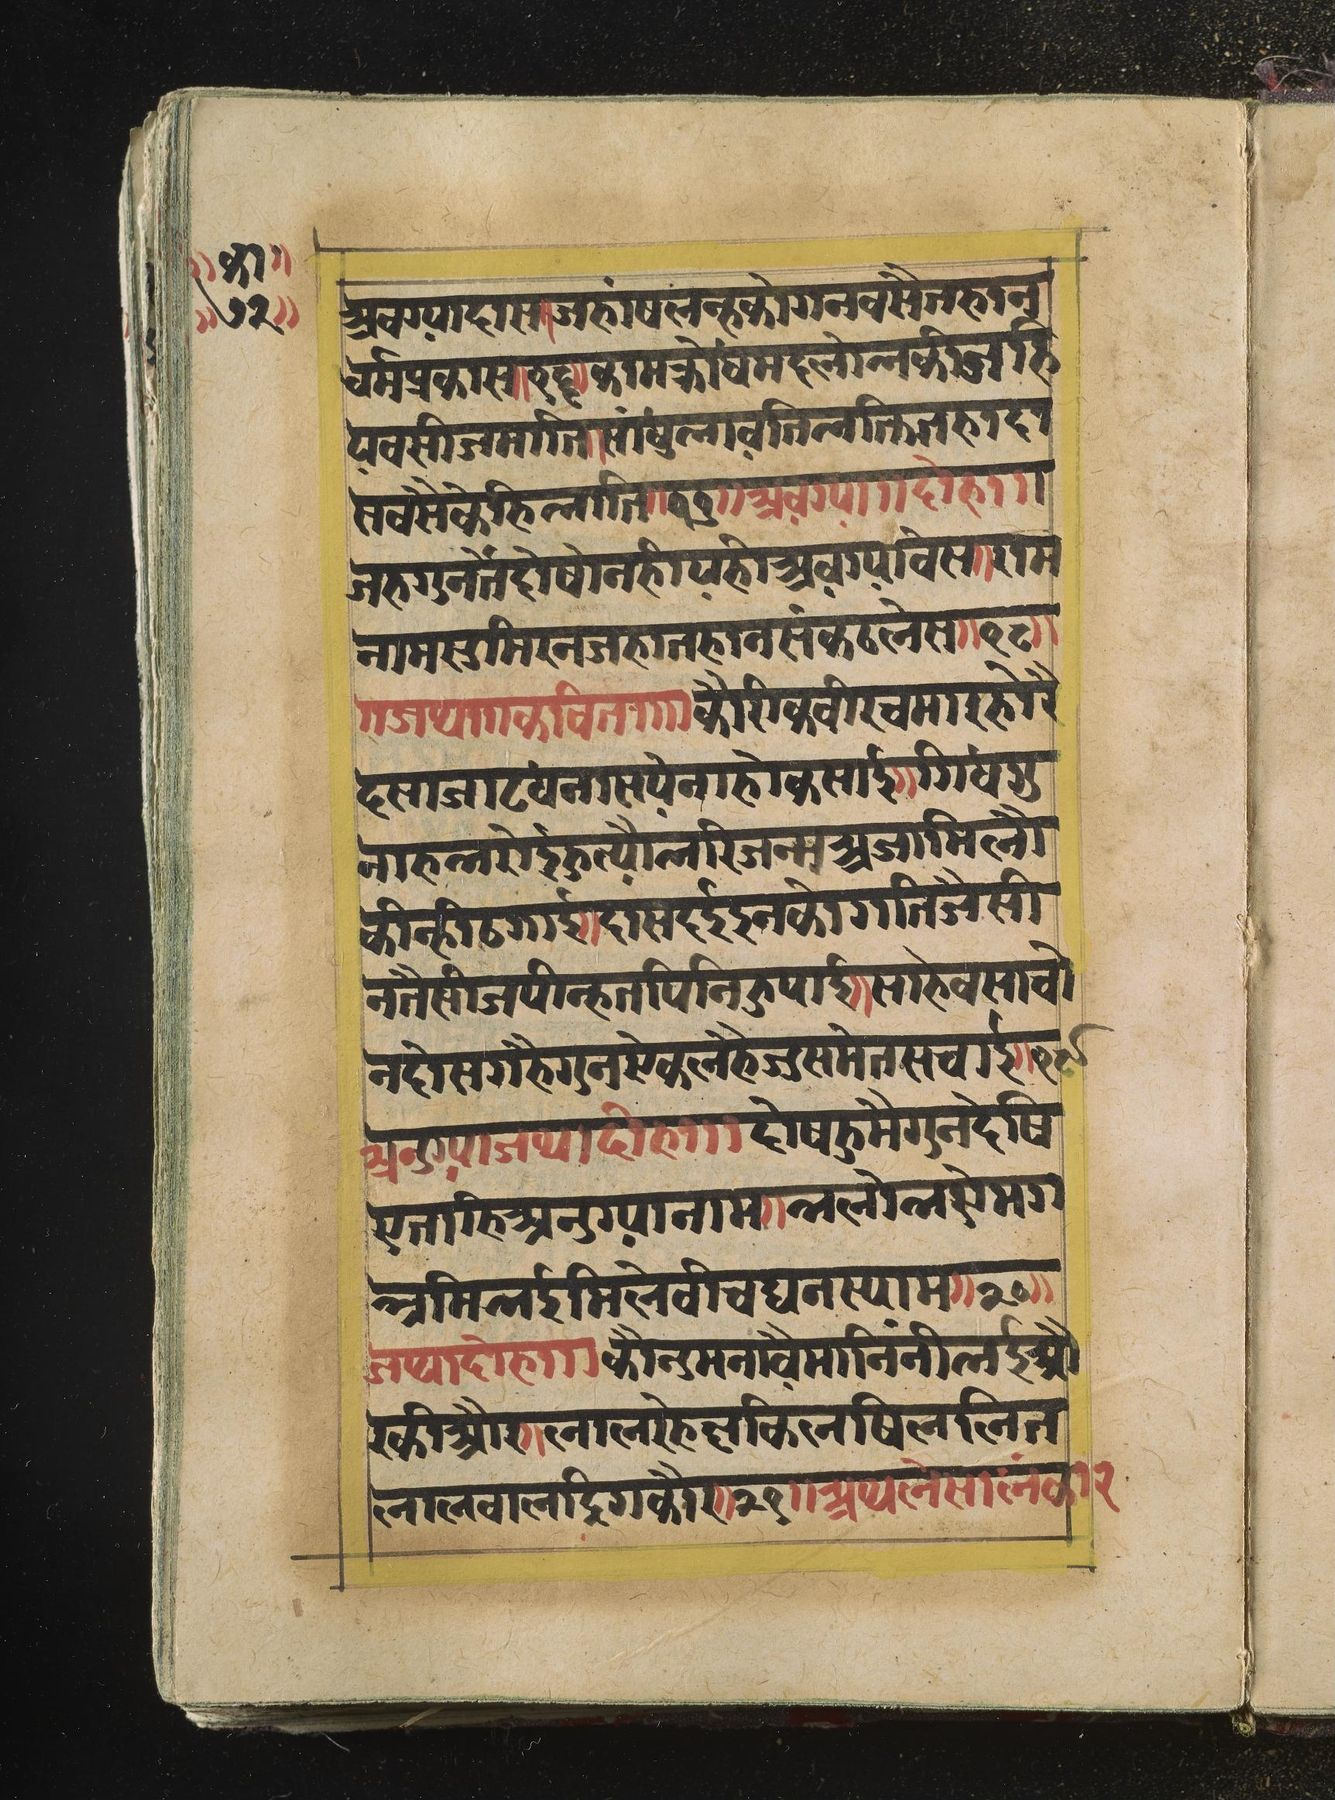 ॥का॥
॥७२॥
अवग्यादास॥जहांषलन्हकोगनवसैतहान
धर्मप्रकास॥१६॥कामक्रोधमदलोभकीजहि
यवसीजमाति॥सांधुभावतिभक्तितहादा
सवसैकेहिभाति॥१७॥अवग्या॥दोहा॥
जहगुनतेंदोषोनहीयहीअवग्यविस॥राम
नामसुमिरनजहातहानसंकटलेस॥१८॥
॥जथा॥कवित॥॥कौरिकवीरचमारहोरै
दसाजाटधंनासधेनाहोकसाई॥गिधगु
नाहभरोईहुत्यौभरिजन्मअजामिलै
कीन्हीठगाई॥दासदईइनकोगतिजैसी
नतैसीजपीन्हतपिनिहुपाई॥साहेवसाचो
नदोसगहैगुनऐकलहैजुसमेतसचाई॥१९
अनुग्याजथादोहा॥॥दोषहुमैगुनदेषि
ऐताहिअनुग्यानाम॥भलोभऐमग
भ्रमिभईमिलेवीचघनस्याम॥२०॥
जथादोहा॥॥कौनुमनावैमानिंनीभईऔ
रकीऔर॥लालरहेछकिलषिललित
लालवालदिृगकौर॥२१॥अथलेसालंकार